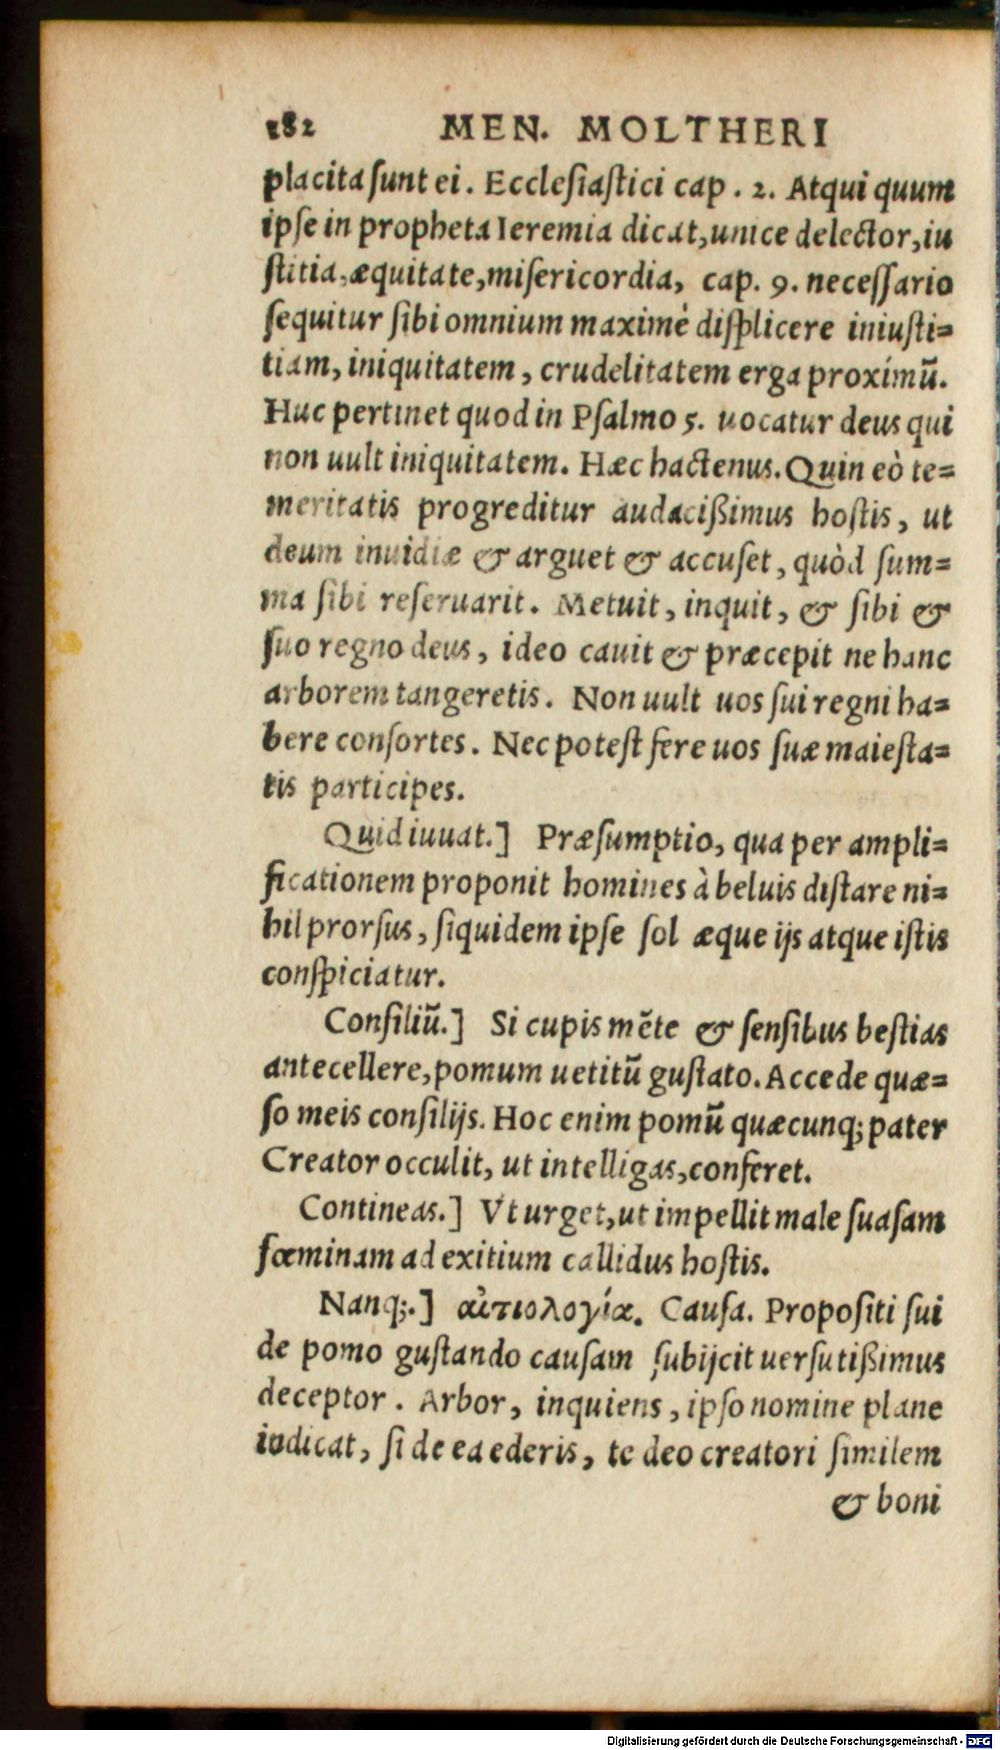 182 MEN. MOLTHERI
placita ſunt ei. Eccleſiaſtici cap. 2. Atqui quum
ipſe in propheta Ieremia dicat, unice delector, iu
ſtitia, æquitate, miſericordia, cap. 9. neceſſario
ſequitur ſibi omnium maximè diſplicere iniuſti-
tiam, iniquitatem, crudelitatem erga proximũ.
Huc pertinet quod in Pſalmo 5. uocatur deus qui
non uult iniquitatem. Hæc hactenus. Quin eò te-
meritatis progreditur audacißimus hoſtis, ut
deum inuidiæ & arguet & accuſet, quòd ſum-
ma ſibi reſeruarit. Metuit, inquit, & ſibi &
ſuo regno deus, ideo cauit & præcepit ne hanc
arborem tangeretis. Non uult uos ſui regni ha-
bere conſortes. Nec poteſt fere uos ſuæ maieſta-
tis participes.
Quid iuuat.] Præſumptio, qua per ampli-
ficationem proponit homines à beluis diſtare ni-
hil prorſus, ſiquidem ipſe ſol æque ijs atque iſtis
conſpiciatur.
Conſiliũ.] Si cupis mẽte & ſenſibus beſtias
antecellere, pomum uetitũ guſtato. Accede quæ-
ſo meis conſilijs. Hoc enim pomũ quæcunq; pater
Creator occulit, ut intelligas, conferet.
Contineas.] Vt urget, ut impellit male ſuaſam
fœminam ad exitium callidus hoſtis.
Nanq;.] αἰτιολογία. Cauſa. Propoſiti ſui
de pomo guſtando cauſam ſubijcit uerſutißimus
deceptor. Arbor, inquiens, ipſo nomine plane
indicat, ſi de ea ederis, te deo creatori ſimilem
& boni
Digitalisierung gefördert durch die Deutsche Forschungsgemeinschaft - DFG